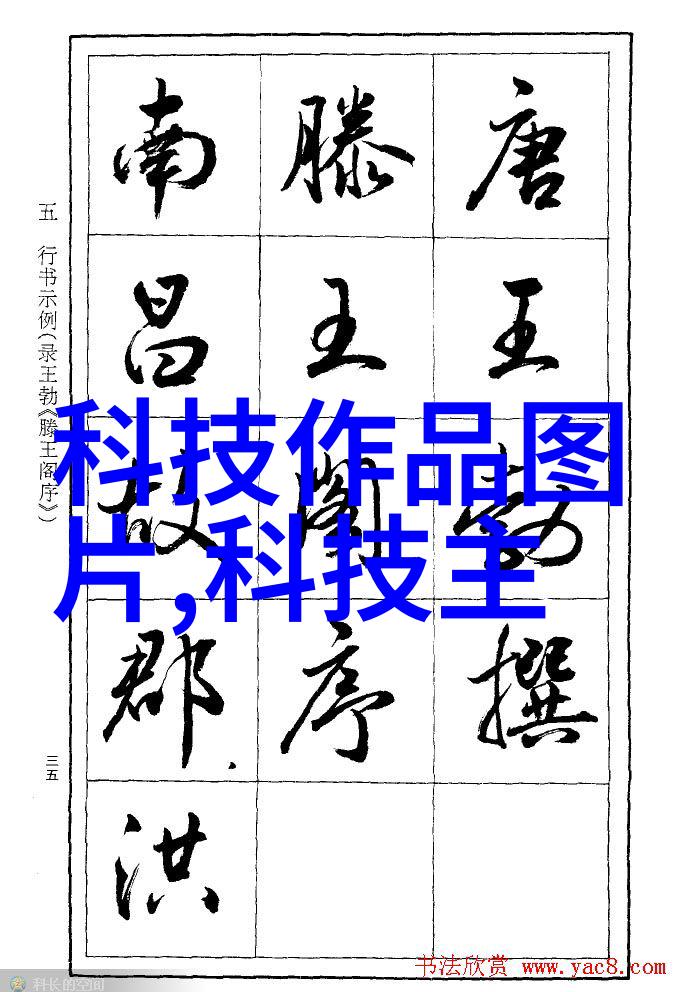 唐王勃撰
滕王阁序
南昌故郡
洪
五 行书示例(录王勃《滕王阁序》)
三五
科技作品图
片,科技主
书法欣赏 www.yac8.com
科长的空间